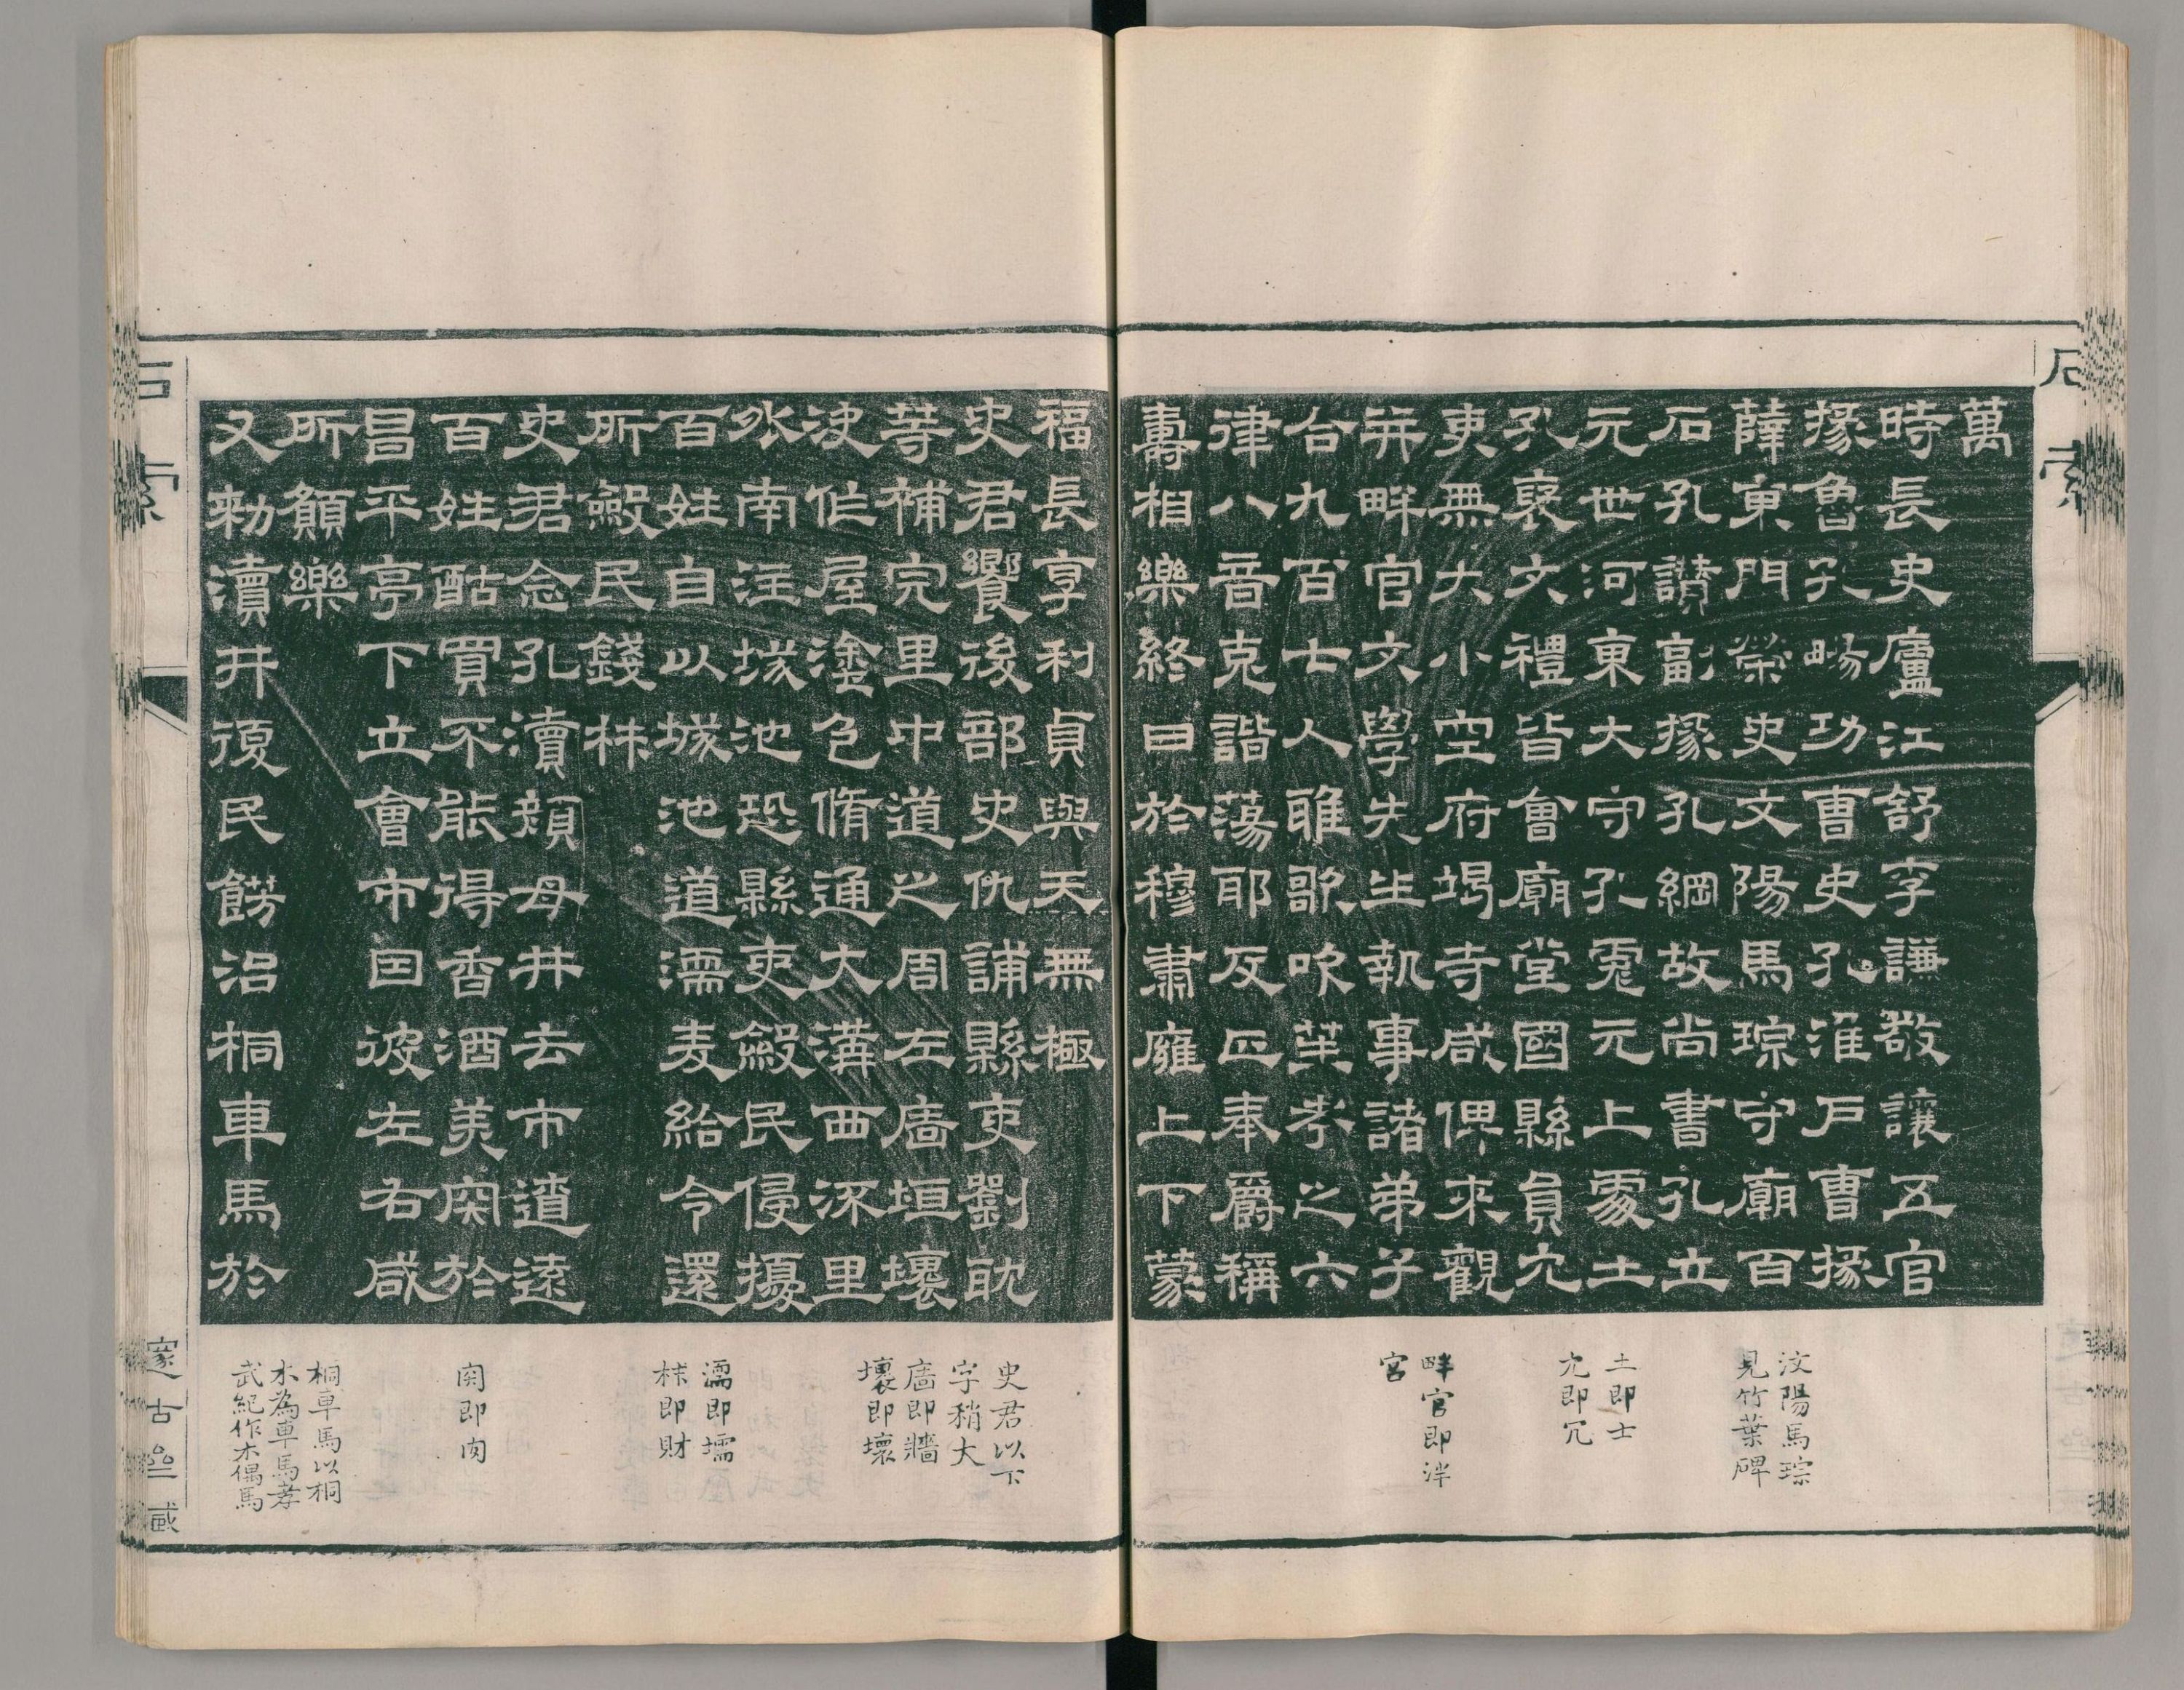 萬
時長史廬江舒李謙敬讓五官
掾魯孔暘功曹史孔淮戶曹掾
薛東門榮史文陽馬琮守廟百
石孔讃副掾孔綱故尚書孔立
元世河東大守孔彪元上處土
孔褒文禮皆會廟堂國縣員冗
吏無大小空府竭寺咸俾來觀
并畔官文學先生執事諸弟子
合九百七人雅歌吹笙考之六
律八音克諧蕩耶反正奉爵稱
壽相樂終日於穆肅廱上下蒙
福長享利貞與天無極
史君饗後部史仇誧縣吏劉耽
等補完里中道之周左廧垣壞
決作屋塗色脩通大溝西流里
外南注城池恐縣吏斂民侵擾
百姓自以城池道濡麦給令還
所斂民錢材
史君念孔瀆顏母井去市遼遠
百姓酤買不能得香酒美肉於
昌平亭下立會市因彼左右咸
所願樂
又勑瀆井復民餝治桐車馬於
汶陽馬琮
見竹葉碑
土即士
冗即冗
畔官即泮
宮
史君以下
字稍大
廧即牆
壞即壞
濡即壖
材即財
肉即肉
桐車馬以桐
木為車馬孝
武紀作木偶馬
石索
邃古㕡藏